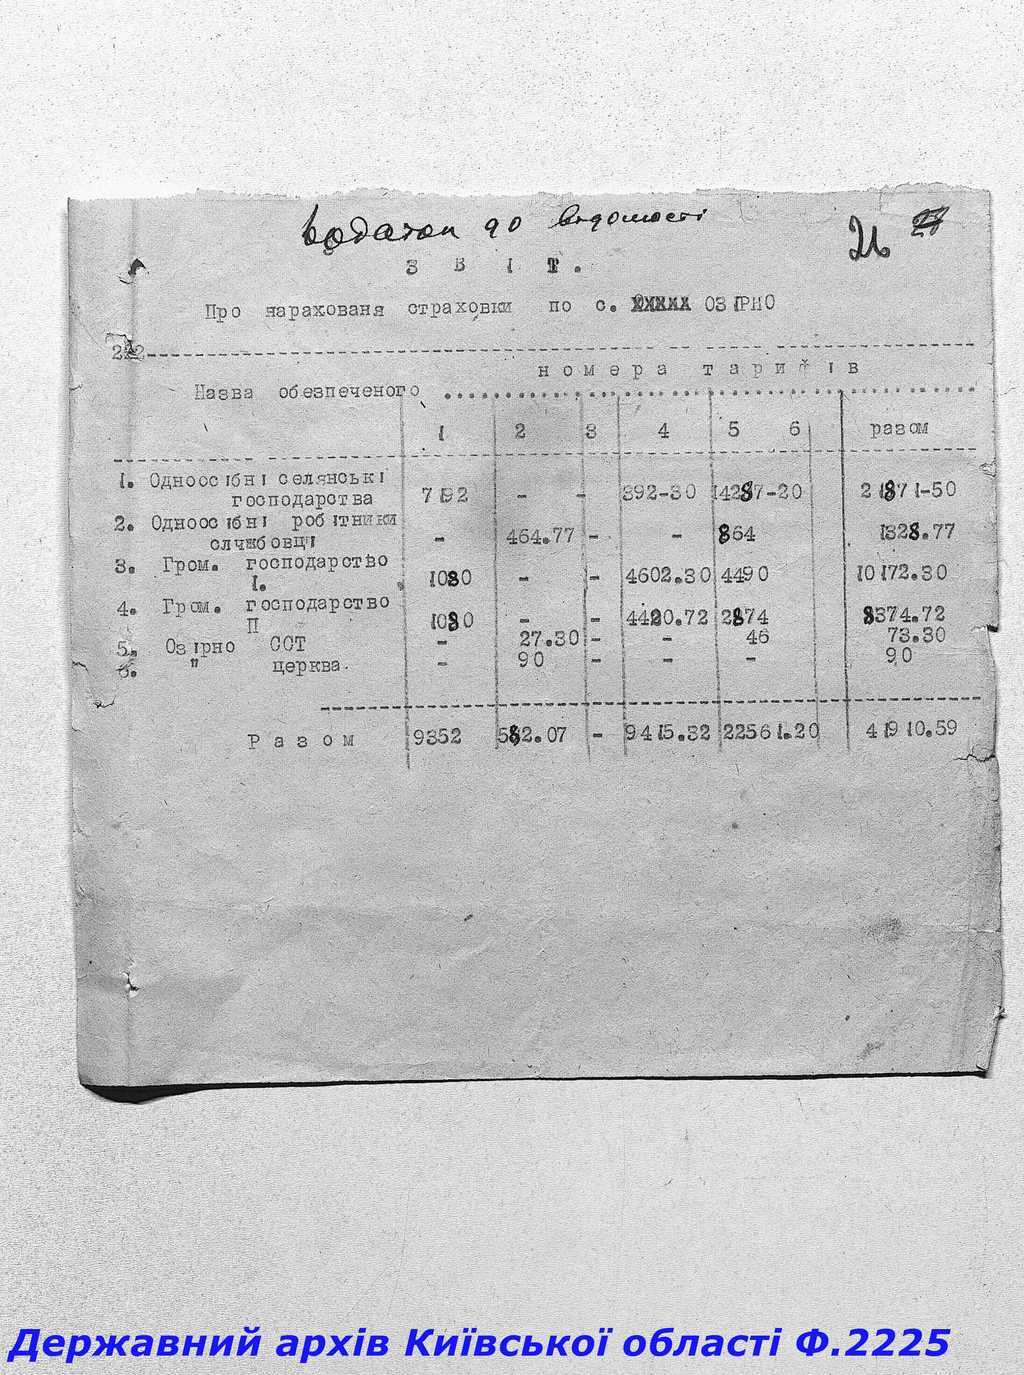 Додаток до відомості
21 27
З В І Т.
Про нарахованя страховки по с. ХХХХХ ОЗІРНО
222
номера тарифів
Назва обезпеченого
1 2 3 4 5 6 разом
1. Одноосібні селянські
господарства 7192 - - 392-30 14287-20 21871-50
2. Одноосібні робітники
службовці - 464.77 - - 864 1328.77
3. Гром. господарство
I. 1080 - - 4602.30 4490 10172.30
4. Гром. господарство
П 1080 - - 4420.72 2874 8374.72
5. Озірно ССТ - 27.30 - - 46 73.30
6. " церква. - 90 - - - 90
Разом 9352 582.07 - 9415.32 22561.20 41910.59
Державний архів Київської області Ф.2225